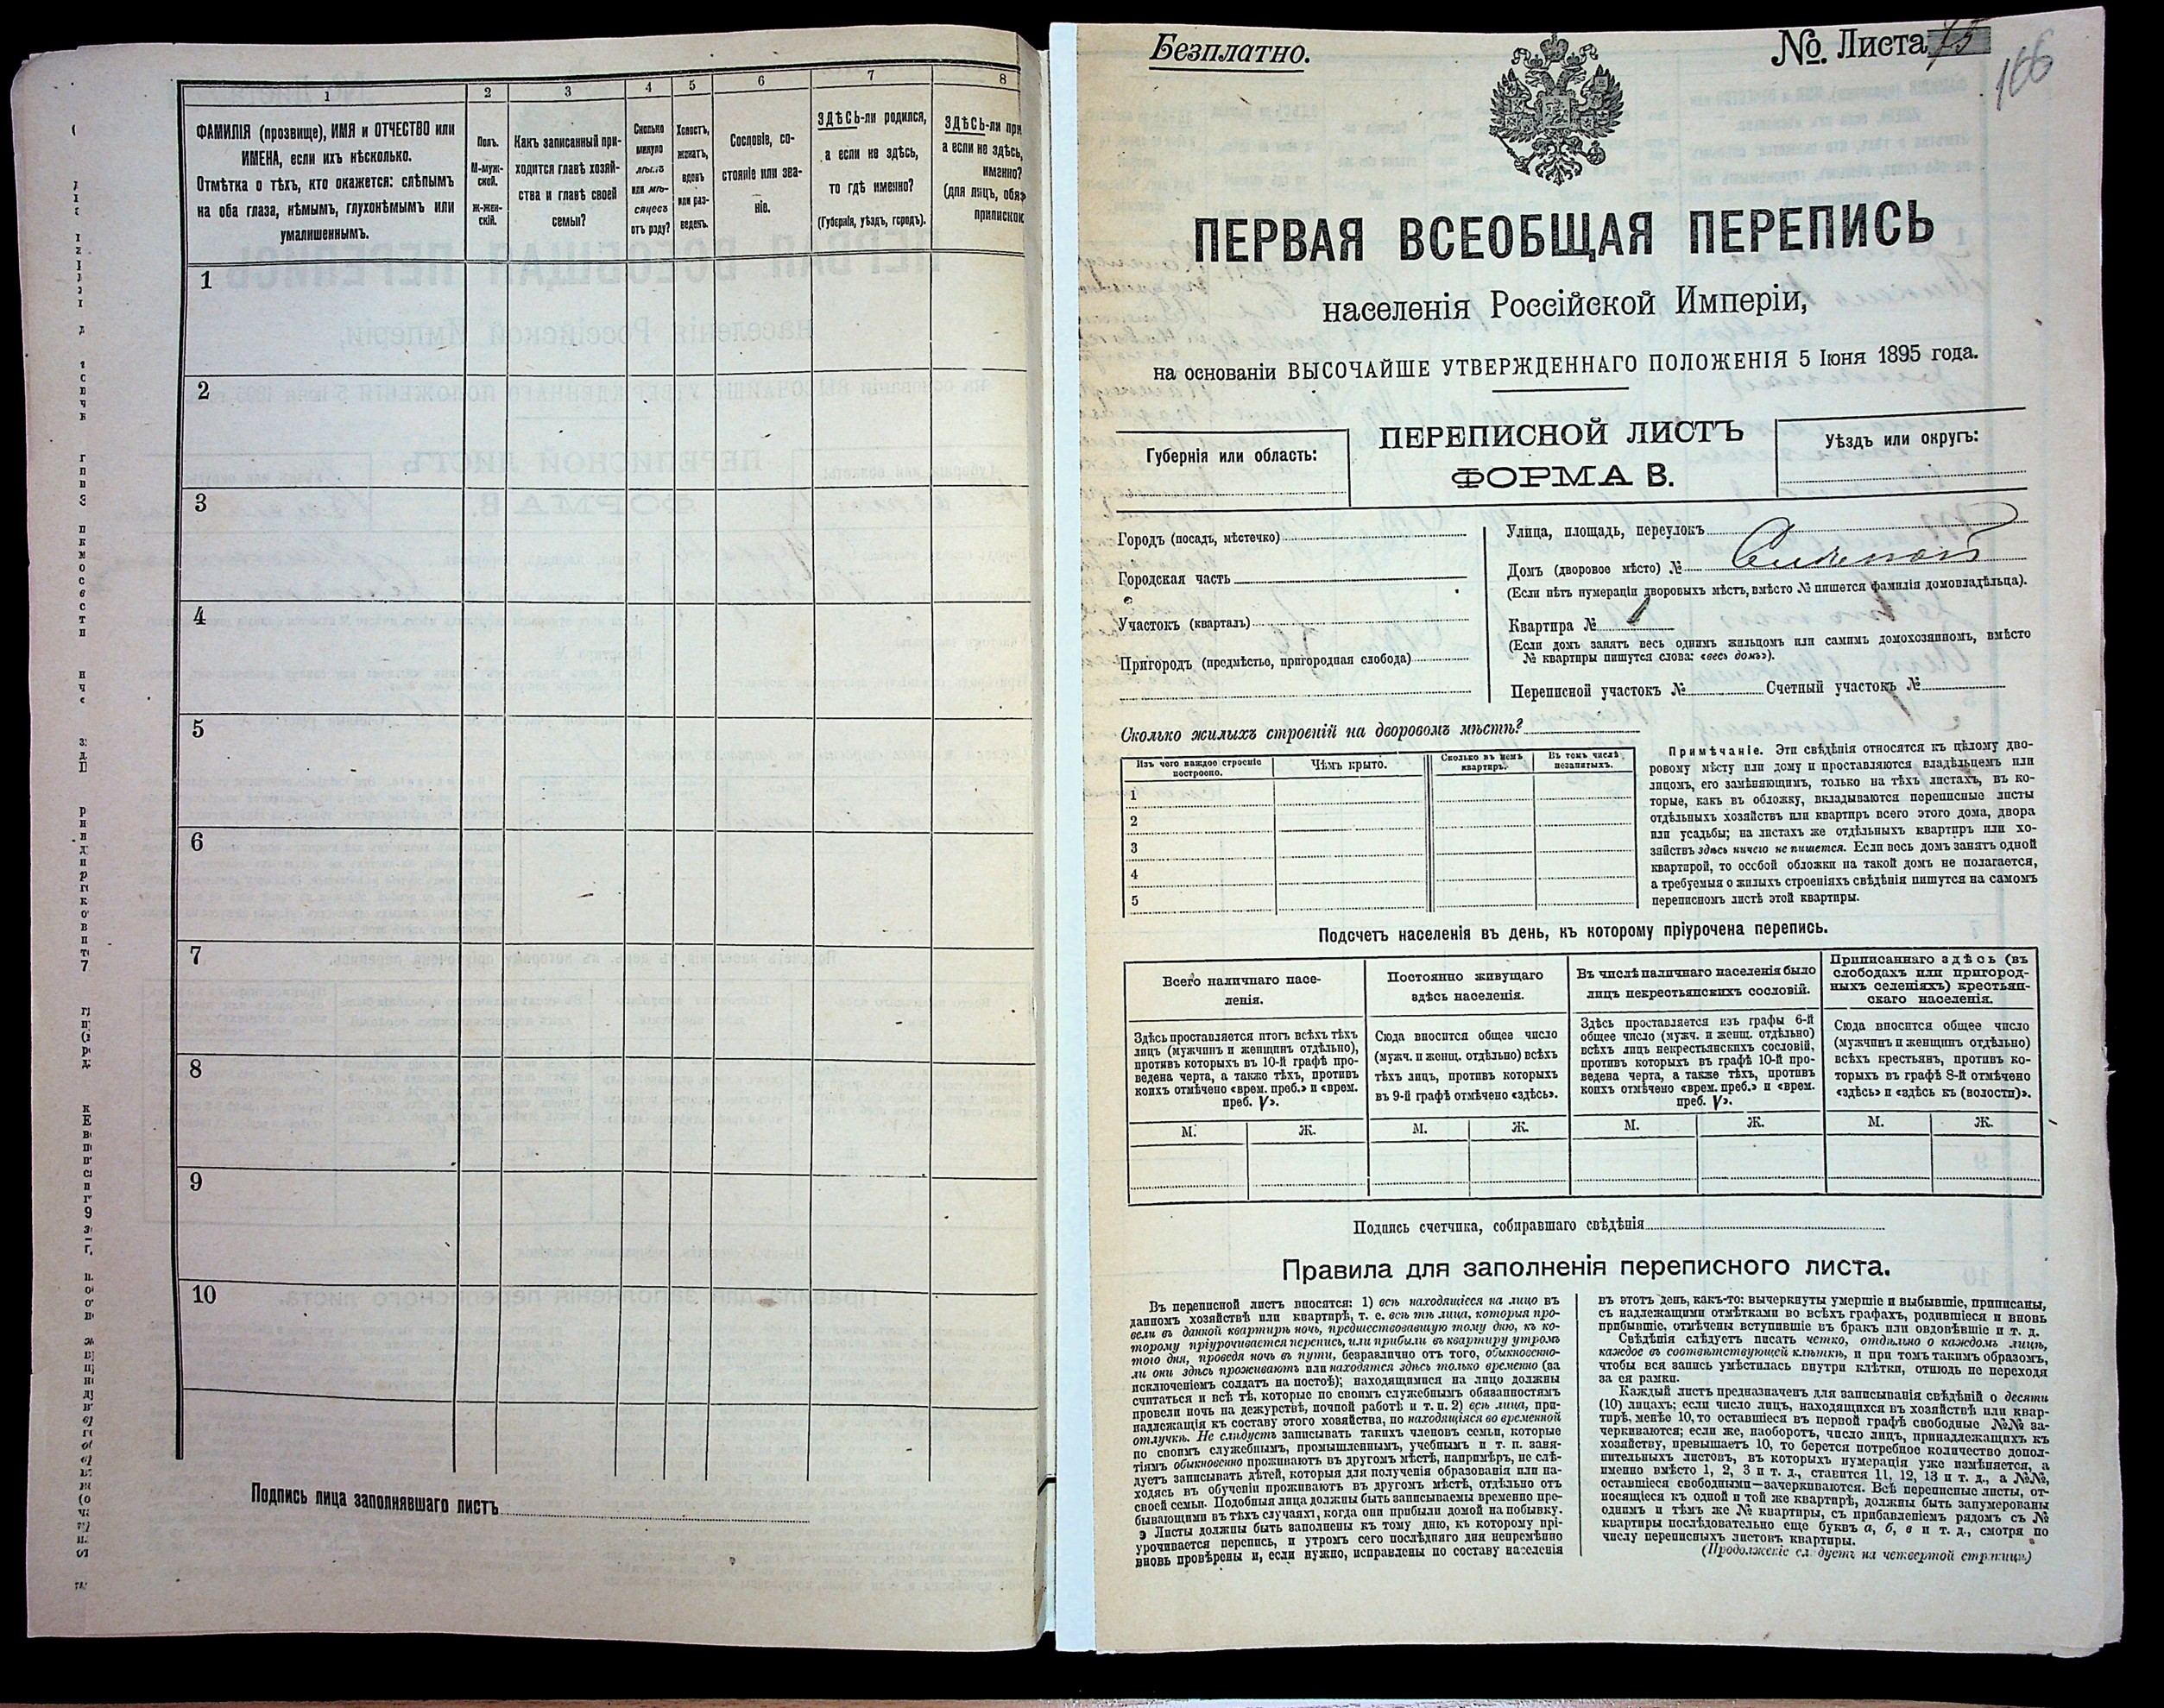 1
2
3
4
5
6
7
8
ФАМИЛІЯ (прозвище), ИМЯ и ОТЧЕСТВО или
ИМЕНА, если ихъ нѣсколько.
Отмѣтка о тѣхъ, кто окажется: слѣпымъ
на оба глаза, нѣмымъ, глухонѣмымъ или
умалишеннымъ.
Полъ.
М-муж-
ской.
Ж-жен-
скій.
Какъ записанный при-
ходится главѣ хозяй-
ства и главѣ своей
семьи?
Сколько
минуло
лѣтъ
или мѣ-
сяцевъ
отъ роду?
Холостъ,
женатъ,
вдовъ
или раз-
веденъ.
Сословіе, со-
стояніе или зва-
ніе.
ЗДѢСЬ-ли родился,
а если не здѣсь,
то гдѣ именно?
(Губернія, уѣздъ, городъ).
ЗДѢСЬ-ли при
а если не здѣсь,
именно?
(для лицъ, обя
приписко
1
2
3
4
5
6
7
8
9
10
Подпись лица заполнявшаго листъ
Безплатно.
№. Листа 75
166
ПЕРВАЯ ВСЕОБЩАЯ ПЕРЕПИСЬ
населенія Россійской Имперіи,
на основаніи ВЫСОЧАЙШЕ УТВЕРЖДЕННАГО ПОЛОЖЕНІЯ 5 Іюня 1895 года.
Губернія или область:
ПЕРЕПИСНОЙ ЛИСТЪ
ФОРМА В.
Уѣздъ или округъ:
Городъ (посадъ, мѣстечко)
Городская часть
Участокъ (кварталъ)
Пригородъ (предмѣстье, пригородная слобода)
Улица, площадь, переулокъ
Домъ (дворовое мѣсто) №
(Если нѣтъ нумераціи дворовыхъ мѣстъ, вмѣсто № пишется фамилія домовладѣльца).
Квартира № 1
(Если домъ занятъ весь однимъ жильцомъ или самимъ домохозяиномъ, вмѣсто
№ квартиры пишутся слова: «весь домъ»).
Переписной участокъ № Счетный участокъ №
Сколько жилыхъ строеній на дворовомъ мѣстѣ?
Изъ чего каждое строеніе
построено.
Чѣмъ крыто.
Сколько въ немъ
квартиръ.
Въ томъ числѣ
незанятыхъ.
1
2
3
4
5
Примѣчаніе. Эти свѣдѣнія относятся къ цѣлому дво-
ровому мѣсту или дому и проставляются владѣльцемъ или
лицомъ, его замѣняющимъ, только на тѣхъ листахъ, въ ко-
торые, какъ въ обложку, вкладываются переписные листы
отдѣльныхъ хозяйствъ или квартиръ всего этого дома, двора
или усадьбы; на листахъ же отдѣльныхъ квартиръ или хо-
зяйствъ здѣсь ничего не пишется. Если весь домъ занятъ одной
квартирой, то особой обложки на такой домъ не полагается,
а требуемыя о жилыхъ строеніяхъ свѣдѣнія пишутся на самомъ
переписномъ листѣ этой квартиры.
Подсчетъ населенія въ день, къ которому пріурочена перепись.
Всего наличнаго насе-
ленія.
Здѣсь проставляется итогъ всѣхъ тѣхъ
лицъ (мужчинъ и женщинъ отдѣльно),
противъ которыхъ въ 10-й графѣ про-
ведена черта, а также тѣхъ, противъ
коихъ отмѣчено «врем. преб.» и «врем.
преб. V».
Постоянно живущаго
здѣсь населенія.
Сюда вносится общее число
(мужч. и женщ. отдѣльно) всѣхъ
тѣхъ лицъ, противъ которыхъ
въ 9-й графѣ отмѣчено «здѣсь».
Въ числѣ наличнаго населенія было
лицъ некрестьянскихъ сословій.
Здѣсь проставляется изъ графы 6-й
общее число (мужч. и женщ. отдѣльно)
всѣхъ лицъ некрестьянскихъ сословій,
противъ которыхъ въ графѣ 10-й про-
ведена черта, а также тѣхъ, противъ
коихъ отмѣчено «врем. преб.» и «врем.
преб. V».
Приписаннаго здѣсь (въ
слободахъ или пригород-
ныхъ селеніяхъ) крестьян-
скаго населенія.
Сюда вносится общее число
(мужчинъ и женщинъ отдѣльно)
всѣхъ крестьянъ, противъ ко-
торыхъ въ графѣ 8-й отмѣчено
«здѣсь» и «здѣсь къ (волости)».
М. Ж. М. Ж. М. Ж. М. Ж.
Подпись счетчика, собиравшаго свѣдѣнія
Правила для заполненія переписного листа.
Въ переписной листъ вносятся: 1) всѣ находящіеся на лицо въ
данномъ хозяйствѣ или квартирѣ, т. е. всѣ тѣ лица, которыя про-
вели въ данной квартирѣ ночь, предшествовавшую тому дню, къ ко-
торому пріурочивается перепись, или прибыли въ квартиру утромъ
того дня, проведя ночь въ пути, безразлично отъ того, обыкновенно-
ли они здѣсь проживаютъ или находятся здѣсь только временно (за
исключеніемъ солдатъ на постоѣ); находящимися на лицо должны
считаться и всѣ тѣ, которые по своимъ служебнымъ обязанностямъ
провели ночь на дежурствѣ, ночной работѣ и т. п. 2) всѣ лица, при-
надлежащія къ составу этого хозяйства, но находящіяся во временной
отлучкѣ. Не слѣдуетъ записывать такихъ членовъ семьи, которые
по своимъ служебнымъ, промышленнымъ, учебнымъ и т. п. заня-
тіямъ обыкновенно проживаютъ въ другомъ мѣстѣ, напримѣръ, не слѣ-
дуетъ записывать дѣтей, которыя для полученія образованія или на-
ходясь въ обученіи проживаютъ въ другомъ мѣстѣ, отдѣльно отъ
своей семьи. Подобныя лица должны быть записываемы временно пре-
бывающими въ тѣхъ случаяхъ, когда они прибыли домой на побывку.
Листы должны быть заполнены къ тому дню, къ которому прі-
урочивается перепись, и утромъ сего послѣдняго дня непремѣнно
вновь провѣрены и, если нужно, исправлены по составу населенія
въ этотъ день, какъ-то: вычеркнуты умершіе и выбывшіе, приписаны,
съ надлежащими отмѣтками во всѣхъ графахъ, родившіеся и вновь
прибывшіе, отмѣчены вступившіе въ бракъ или овдовѣвшіе и т. д.
Свѣдѣнія слѣдуетъ писать четко, отдѣльно о каждомъ лицѣ,
каждое въ соотвѣтствующей клѣткѣ, и при томъ такимъ образомъ,
чтобы вся запись умѣстилась внутри клѣтки, отнюдь не переходя
за ея рамки.
Каждый листъ предназначенъ для записыванія свѣдѣній о десяти
(10) лицахъ; если число лицъ, находящихся въ хозяйствѣ или квар-
тирѣ, менѣе 10, то оставшіеся въ первой графѣ свободные №№ за-
черкиваются; если же, наоборотъ, число лицъ, принадлежащихъ къ
хозяйству, превышаетъ 10, то берется потребное количество допол-
нительныхъ листовъ, въ которыхъ нумерація уже измѣняется, а
именно вмѣсто 1, 2, 3 и т. д., ставится 11, 12, 13 и т. д., а №№,
оставшіеся свободными—зачеркиваются. Всѣ переписные листы, от-
носящіеся къ одной и той же квартирѣ, должны быть занумерованы
однимъ и тѣмъ же № квартиры, съ прибавленіемъ рядомъ съ №
квартиры послѣдовательно еще буквъ а, б, в и т. д., смотря по
числу переписныхъ листовъ квартиры.
(Продолженіе слѣдуетъ на четвертой страницѣ)